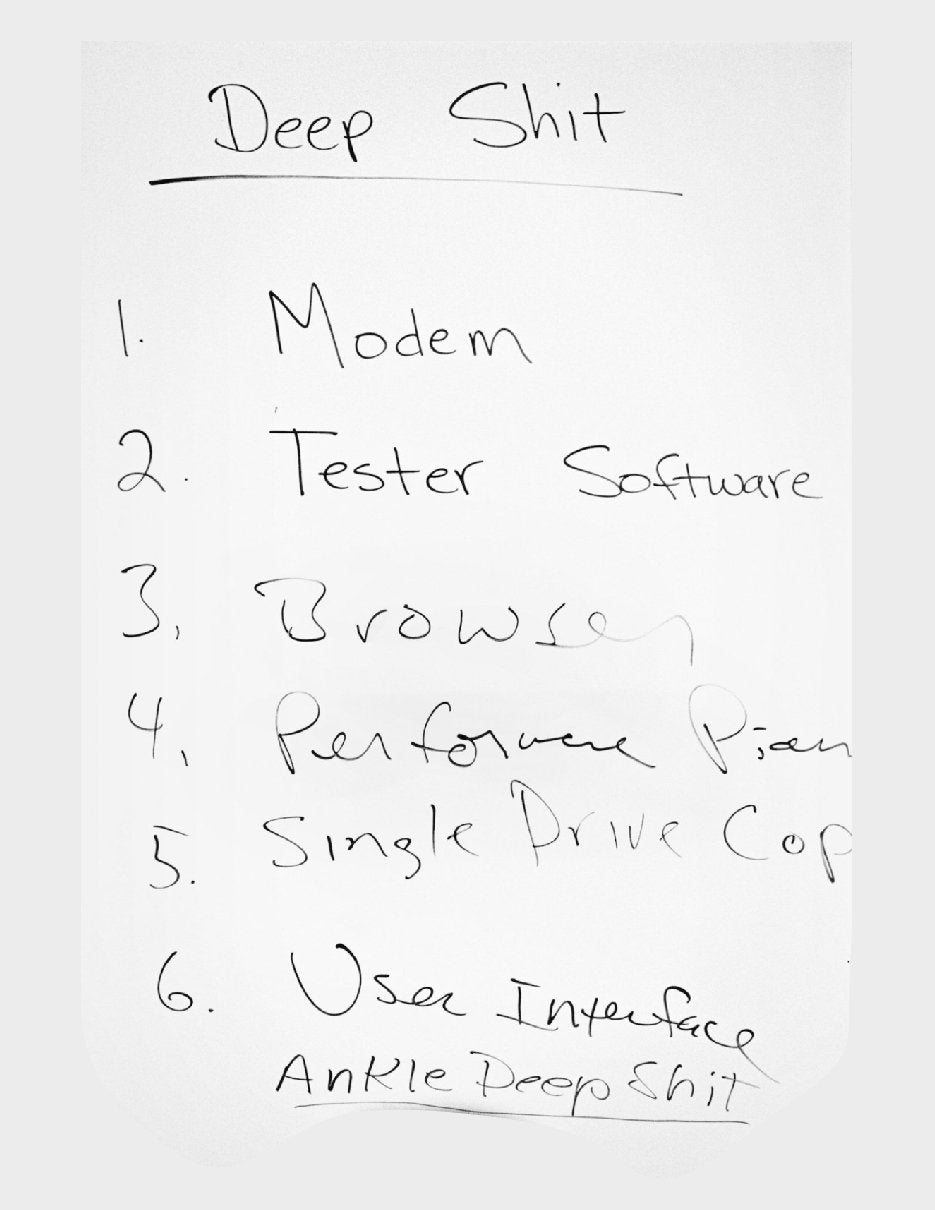 Deep Shit
1. Modem
2. Tester Software
3. Browser
4. Performance
5. Single Drive Cop
6. User Interface
Ankle Deep Shit